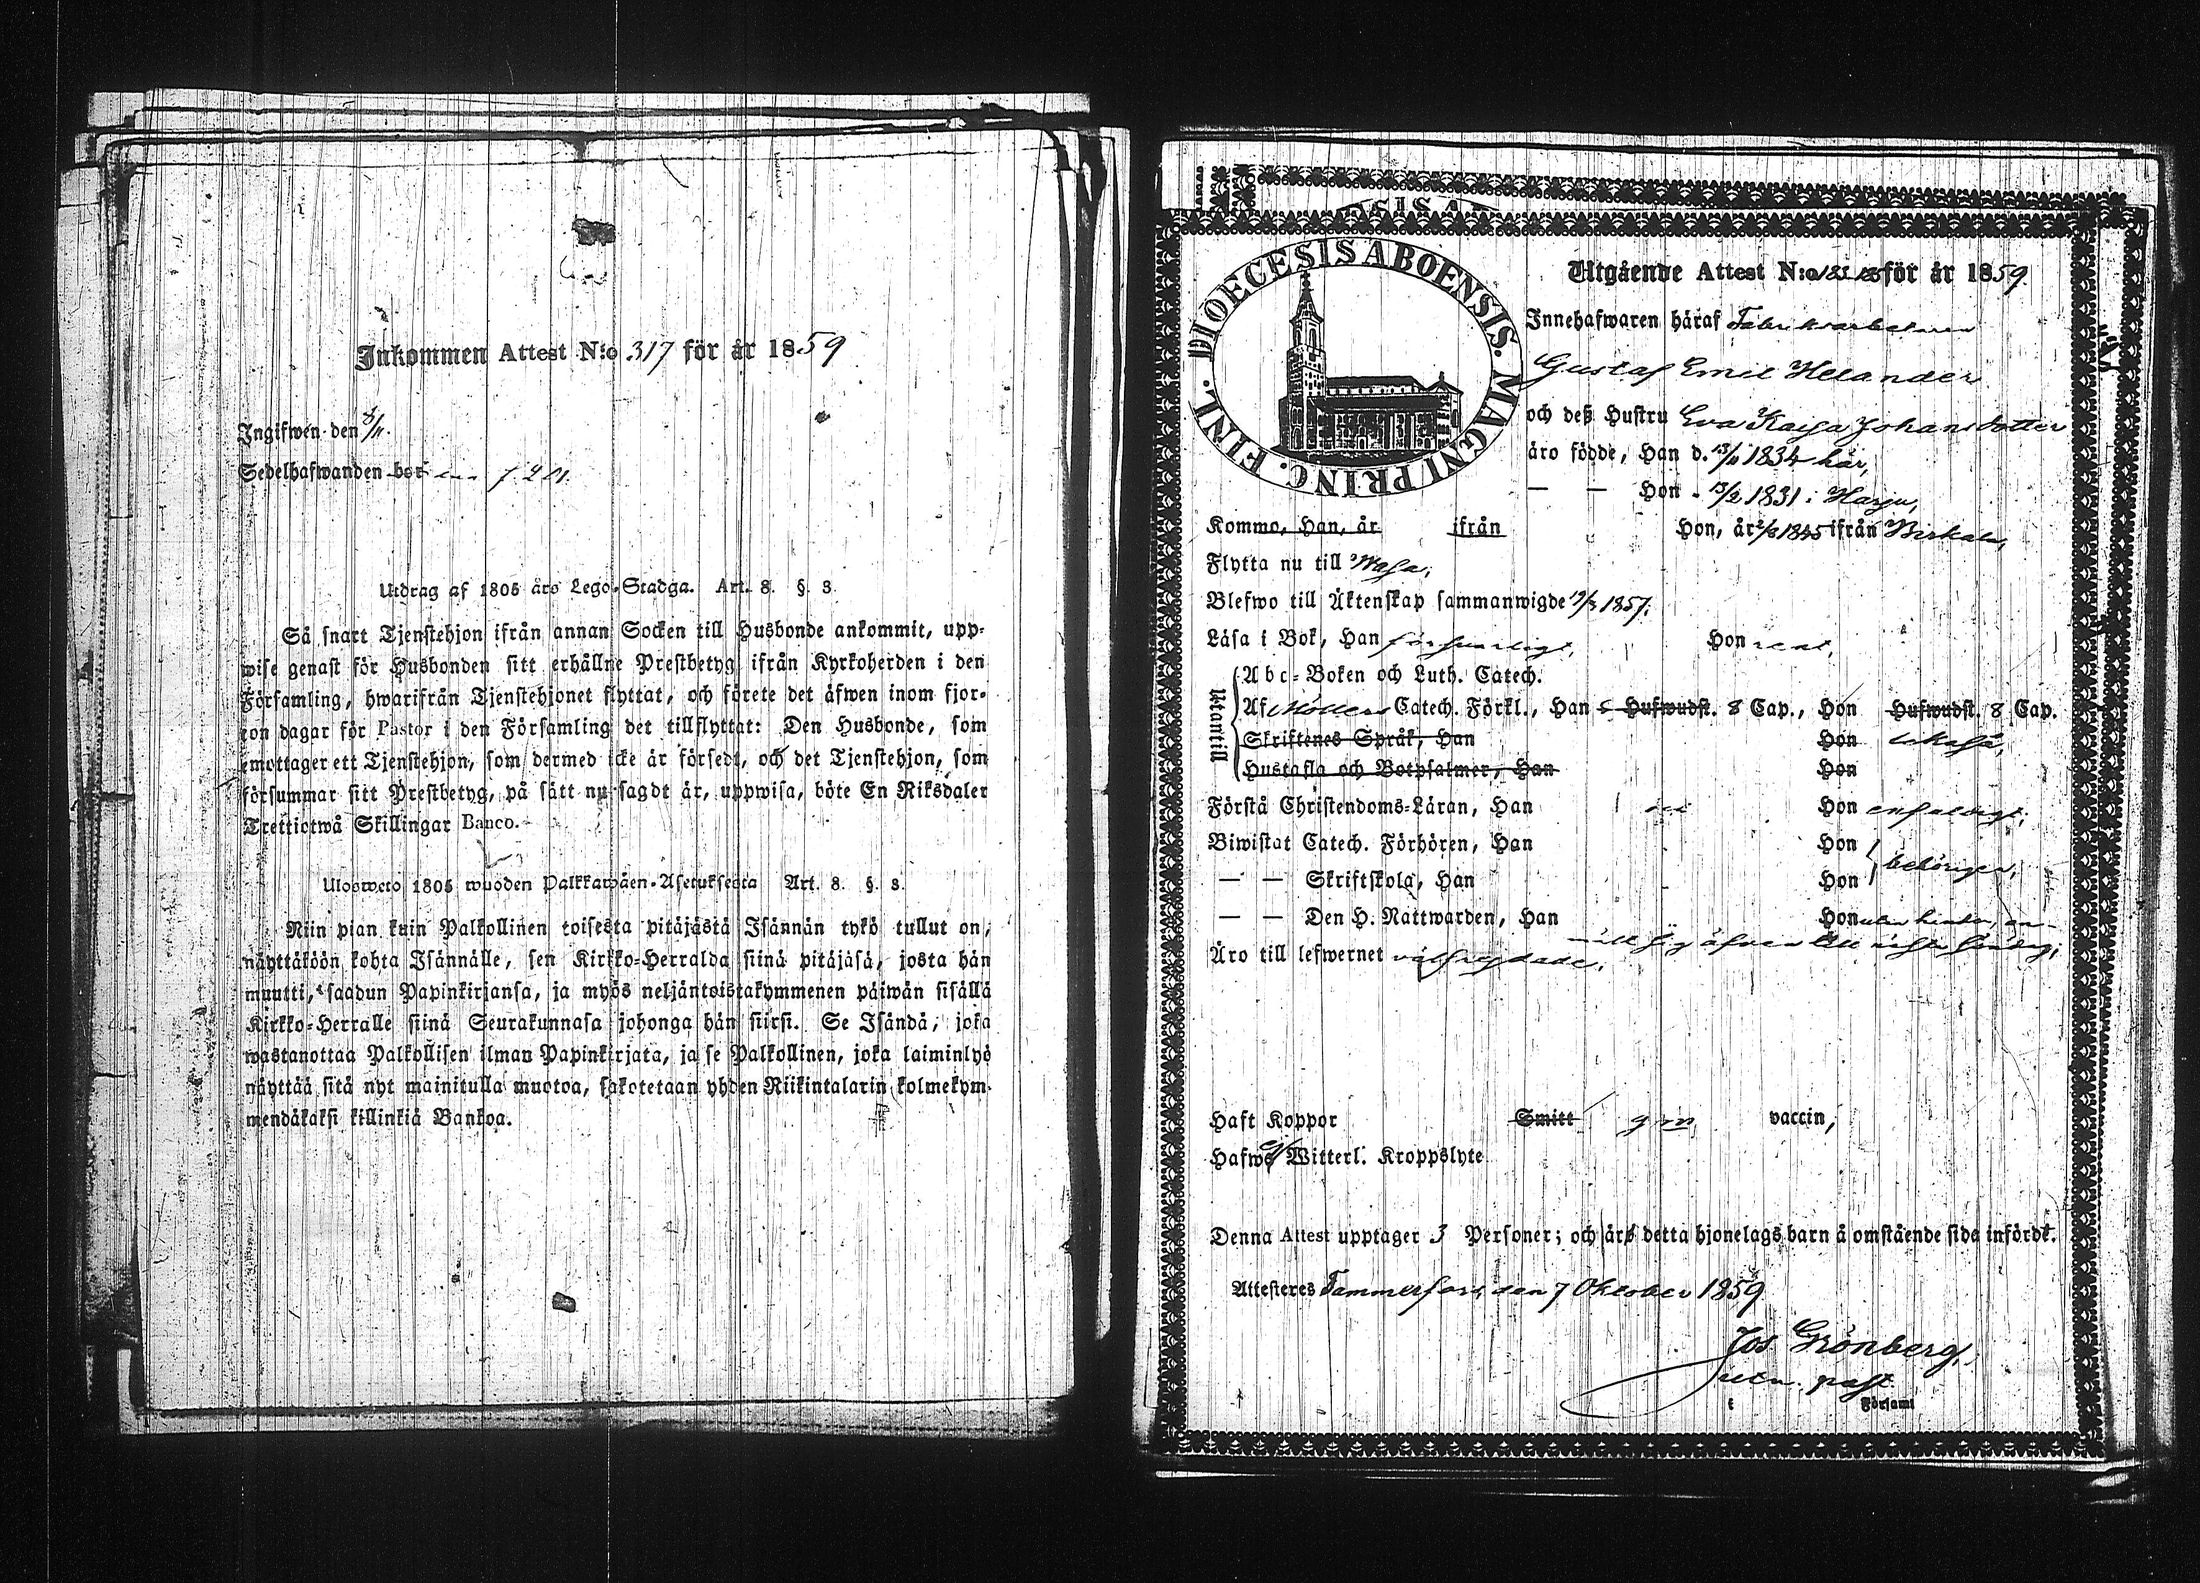 Inkommen Attest N:o 317 för år 1859
Ingifwen den 8/11.
Sedelhafwanden bor
Utdrag af 1805 års Lego-Stadga. Art. 8. §. 3.
Så snart Tjenstehjon ifrån annan Socken till Husbonde ankommit, upp-
wise genast för Husbonden sitt erhållne Prestbetyg ifrån Kyrkoherden i den
Församling, hwarifrån Tjenstehjonet flyttat, och förete det äfwen inom fjor-
ton dagar för Pastor i den Församling det tillflyttat: Den Husbonde, som
emottager ett Tjenstehjon, som dermed icke är försedt, och det Tjenstehjon, som
försummar sitt Prestbetyg, på sätt nu sagdt är, uppwisa, böte En Riksdaler
Trettiotwå Skillingar Banco.
Ulosweto 1805 wuoden Palkkawäen-Asetuksesta Art. 8. §. 3.
Niin pian kuin Palkollinen toisesta pitäjästä Isännän tykö tullut on,
näyttäköön kohta Isännälle, sen Kirkko-Herralda siinä pitäjäsä, josta hän
muutti, saadun Papinkirjansa, ja myös neljäntoistakymmenen päiwän sisällä
Kirkko-Herralle siinä Seurakunnasa johonga hän siirsi. Se Isändä, joka
wastanottaa Palkollisen ilman Papinkirjata, ja se Palkollinen, joka laiminlyö
näyttää sitä nyt mainitulla muotoa, sakotetaan yhden Riikintalarin kolmekym-
mendäkaksi killinkiä Bankoa.
DIOECESIS ABOENSIS. MAGNI PRINC. FINL.
Utgående Attest N:o för år 1859.
Innehafwaren häraf Fabriksarbetaren
Gustaf Emil Helander
och deß Hustru Eva Kajsa Johansdotter
äro födde, Han d. 13/11 1834 här,
— — Hon - 13/2 1831 i Harju,
Kommo, Han, år ifrån Hon, år 1845 ifrån Birkala,
Flytta nu till Wasa,
Blefwo till Äktenskap sammanwigde 19/3 1857.
Läsa i Bok, Han försvarligt, Hon
Utantill
Abc-Boken och Luth. Catech.
Af Möllers Catech. Förkl., Han Hufwudst. 8 Cap., Hon Hufwudst. 8 Cap.
Skriftenes Språk, Han Hon likaså,
Hustafla och Botpsalmer, Han Hon
Förstå Christendoms-Läran, Han Hon enfaldigt,
Biwistat Catech. Förhören, Han Hon
— — Skriftskola, Han Hon behörigen,
— — Den H. Nattwarden, Han Hon utan hinder, an-
mält sig äfven
Äro till lefwernet välfrejdade,
Haft Koppor Smitt gm vaccin,
Hafwa ej Witterl. Kroppslyte
Denna Attest upptager 3 Personer; och är detta hjonelags barn å omstående sida infördt.
Attesteres Tammerfors, den 7 Oktober 1859
Jos Grönberg,
past.
i Församl